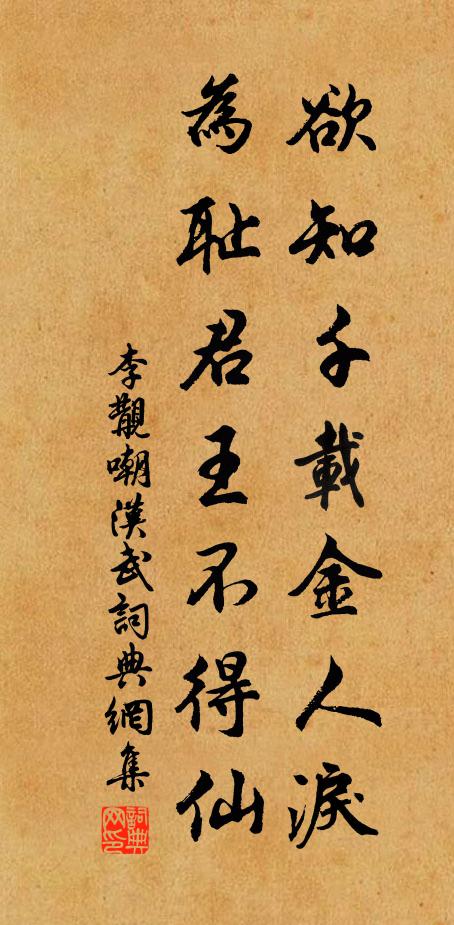 欲知千載金人淚
為恥君王不得仙
李覯嘲漢武詞典網集
詞典网印